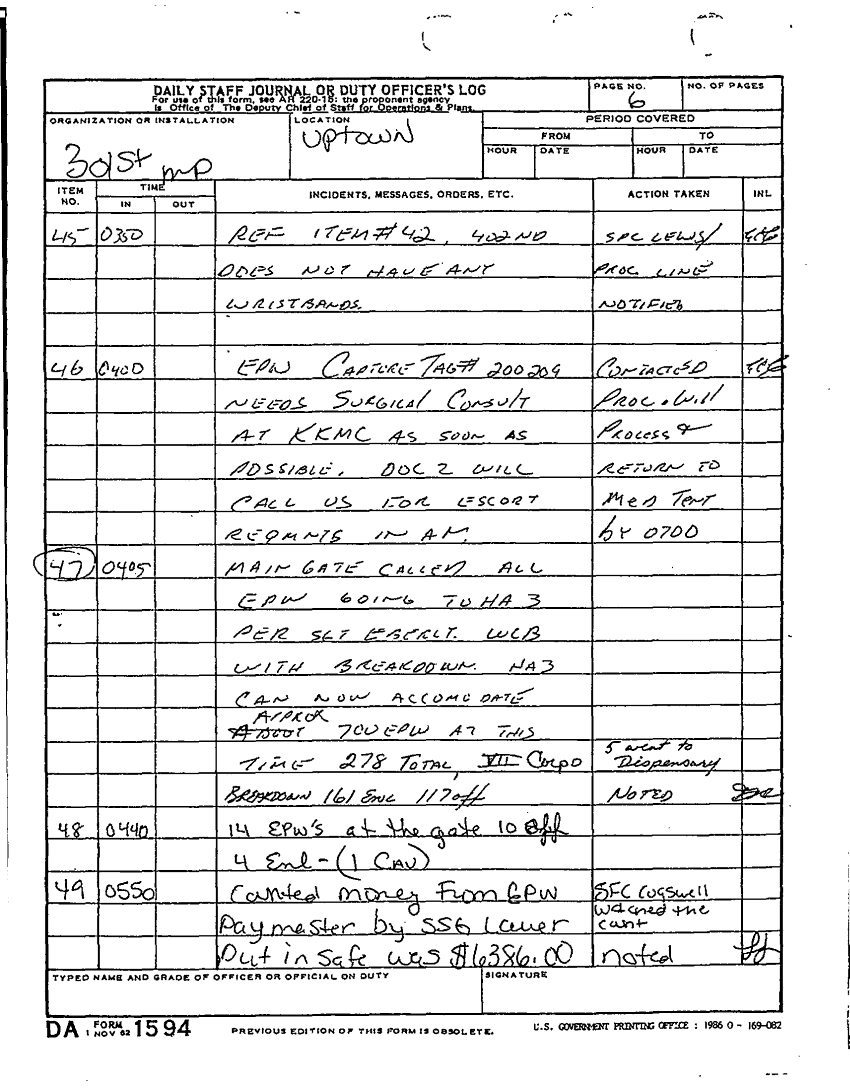 DAILY STAFF JOURNAL OR DUTY OFFICER'S LOG
For use of this form, see AR 220-15: the proponent agency
is Office of The Deputy Chief of Staff for Operations & Plans.
PAGE NO.
6
NO. OF PAGES
ORGANIZATION OR INSTALLATION
301St mp
LOCATION
Uptown
PERIOD COVERED
FROM
TO
HOUR DATE HOUR DATE
ITEM NO. TIME IN OUT INCIDENTS, MESSAGES, ORDERS, ETC. ACTION TAKEN INL
45 0350 REF ITEM# 42, 402ND SPC LEWS/
DOES NOT HAVE ANY PROC LINE
WRISTBANDS. NOTIFIED
46 0400 EPW CAPTURE TAG# 200209 CONTACTED
NEEDS SURGICAL CONSULT PROC. Will
AT KKMC AS SOON AS PROCESS &
POSSIBLE. DOC 2 WILL RETURN TO
CALL US FOR ESCORT MED TENT
REQMNTS IN AM. by 0700
47 0405 MAIN GATE CALLED ALL
EPW GOING TO HA 3
PER SGT EBERLT. WCB
WITH BREAKDOWN. HA3
CAN NOW ACCOMODATE
APPROX
ABOUT 700 EPW AT THIS
TIME 278 TOTAL, VII Corps 5 went to Dispensary
BREAKDOWN 161 ENL 117 off NOTED
48 0440 14 EPW's at the gate 10 off
4 Enl - (1 CAV)
49 0550 Counted money From EPW SFC Cogswell
Paymaster by SSG Lauer watched the cont
Put in safe was $6386.00 noted
TYPED NAME AND GRADE OF OFFICER OR OFFICIAL ON DUTY
SIGNATURE
DA FORM 1 NOV 62 1594
PREVIOUS EDITION OF THIS FORM IS OBSOLETE.
U.S. GOVERNMENT PRINTING OFFICE : 1986 O - 169-082